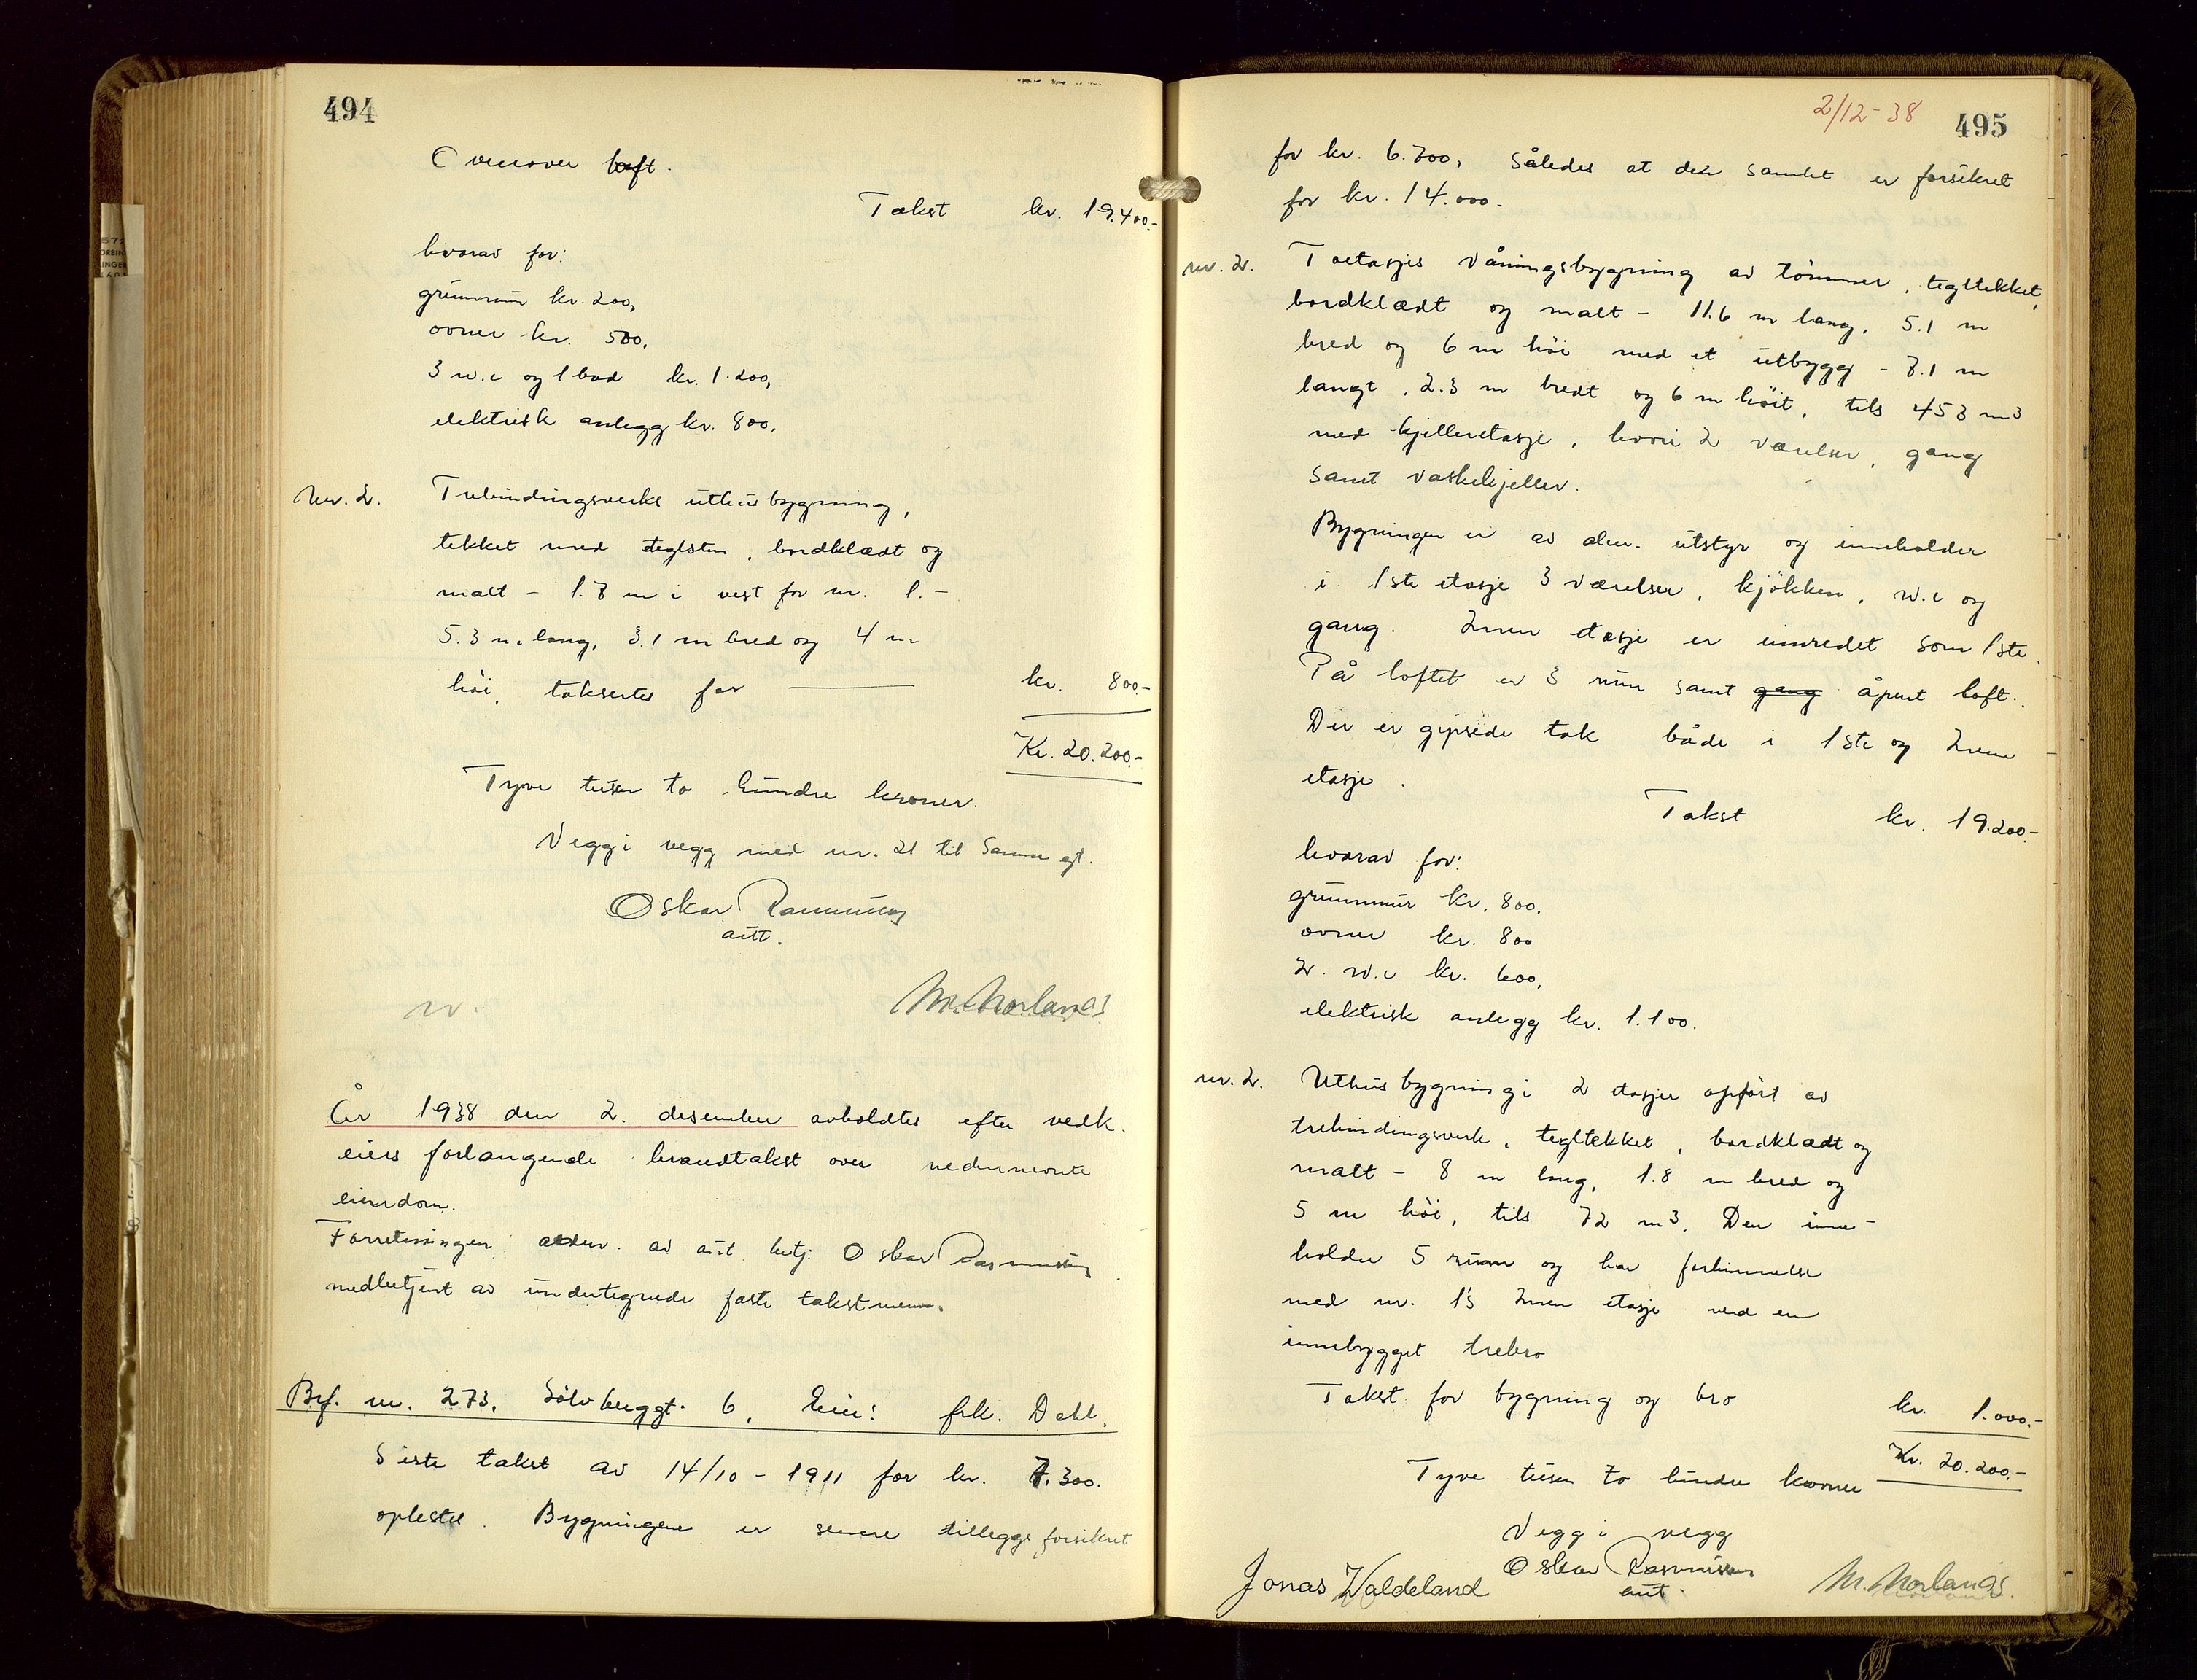 494
Ovenover loft.
Takst kr. 19.400.-
hvorav for:
grunnmur kr. 200,
ovner kr. 500,
3 w.c og 1 bad kr. 1.200,
elektrisk anlegg kr. 800.
Nr. 2. Trebindingsverks uthusbygning,
tekket med teglsten, bordklædt og
malt - 1.7 m i vest for nr. 1. -
5.3 m lang, 3.1 m bred og 4 m
höi, taksertes for kr. 800.-
Kr. 20.200.-
Tyve tusen to hundre kroner.
Vegg i vegg med nr. 21 til samme gt.
Oskar Rasmussen
aut.
M. Norland
År 1938 den 2. desember avholdtes efter vedk.
eiers forlangende brandtakst over nedennevnte
eiendom.
Forretningen adm. av aut betj. Oskar Rasmussen
medbetjent av undertegnede faste takstmenn.
Brf. nr. 273, Sölvberggt. 6, Eier: frk. Dahl.
Siste takst av 14/10 - 1911 for kr. 7.300.
oplestes. Bygningene er senere tilleggsforsikret
2/12-38 495
for kr. 6.700, således at den samlet er forsikret
for kr. 14.000.
nr. 2. Toetasjes våningsbygning av tömmer, tegltekket,
bordklædt og malt - 11.6 m lang, 5.1 m
bred og 6 m höi med et utbygg - 7.1 m
langt, 2.3 m bredt og 6 m höit, tils 453 m3
med kjelleretasje, hvori 2 værelser, gang
samt vaskekjeller.
Bygningen er av alm. utstyr og inneholder
i 1ste etasje 3 værelser, kjökken, w.c og
gang. 2nen etasje er innredet som 1ste.
På loftet er 3 rum samt gang åpent loft.
Der er gipsede tak både i 1ste og 2nen
etasje.
Takst kr. 19.200.-
hvorav for:
grunnmur kr. 800.
ovner kr. 800
2 w.c kr. 600,
elektrisk anlegg kr. 1.100.
nr. 2. Uthusbygning i 2 etasjer opfört av
trebindingsverk, tegltekket, bordklædt og
malt - 8 m lang, 1.8 m bred og
5 m höi, tils 72 m3. Den inne-
holder 5 rum og har forbinnelse
med nr. 1's 2nen etasje ved en
innebygget trebro
Takst for bygning og bro kr. 1.000.-
Kr. 20.200.-
Tyve tusen to hundre kroner
Vegg i vegg
Oskar Rasmussen
aut.
Jonas Waldeland
M. Norland